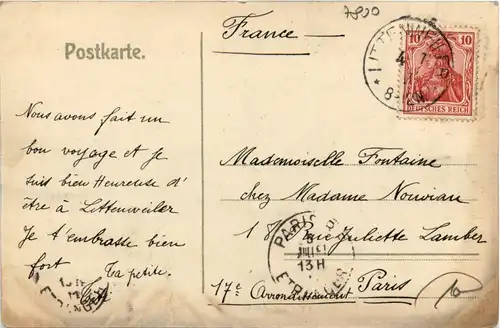 7900
France
Postkarte.
LITTENWEILER
10 10
DEUTSCHES REICH
Nous avons fait un
bon voyage et je
suis bien Heureuse d'
être à Littenweiler
Je t'embrasse bien
fort Ta petite.
Mademoiselle Fontaine
chez Madame Nouvian
1 Rue Juliette Lamber
Paris
17e Arrondissement
PARIS
13 H
ETRANGER